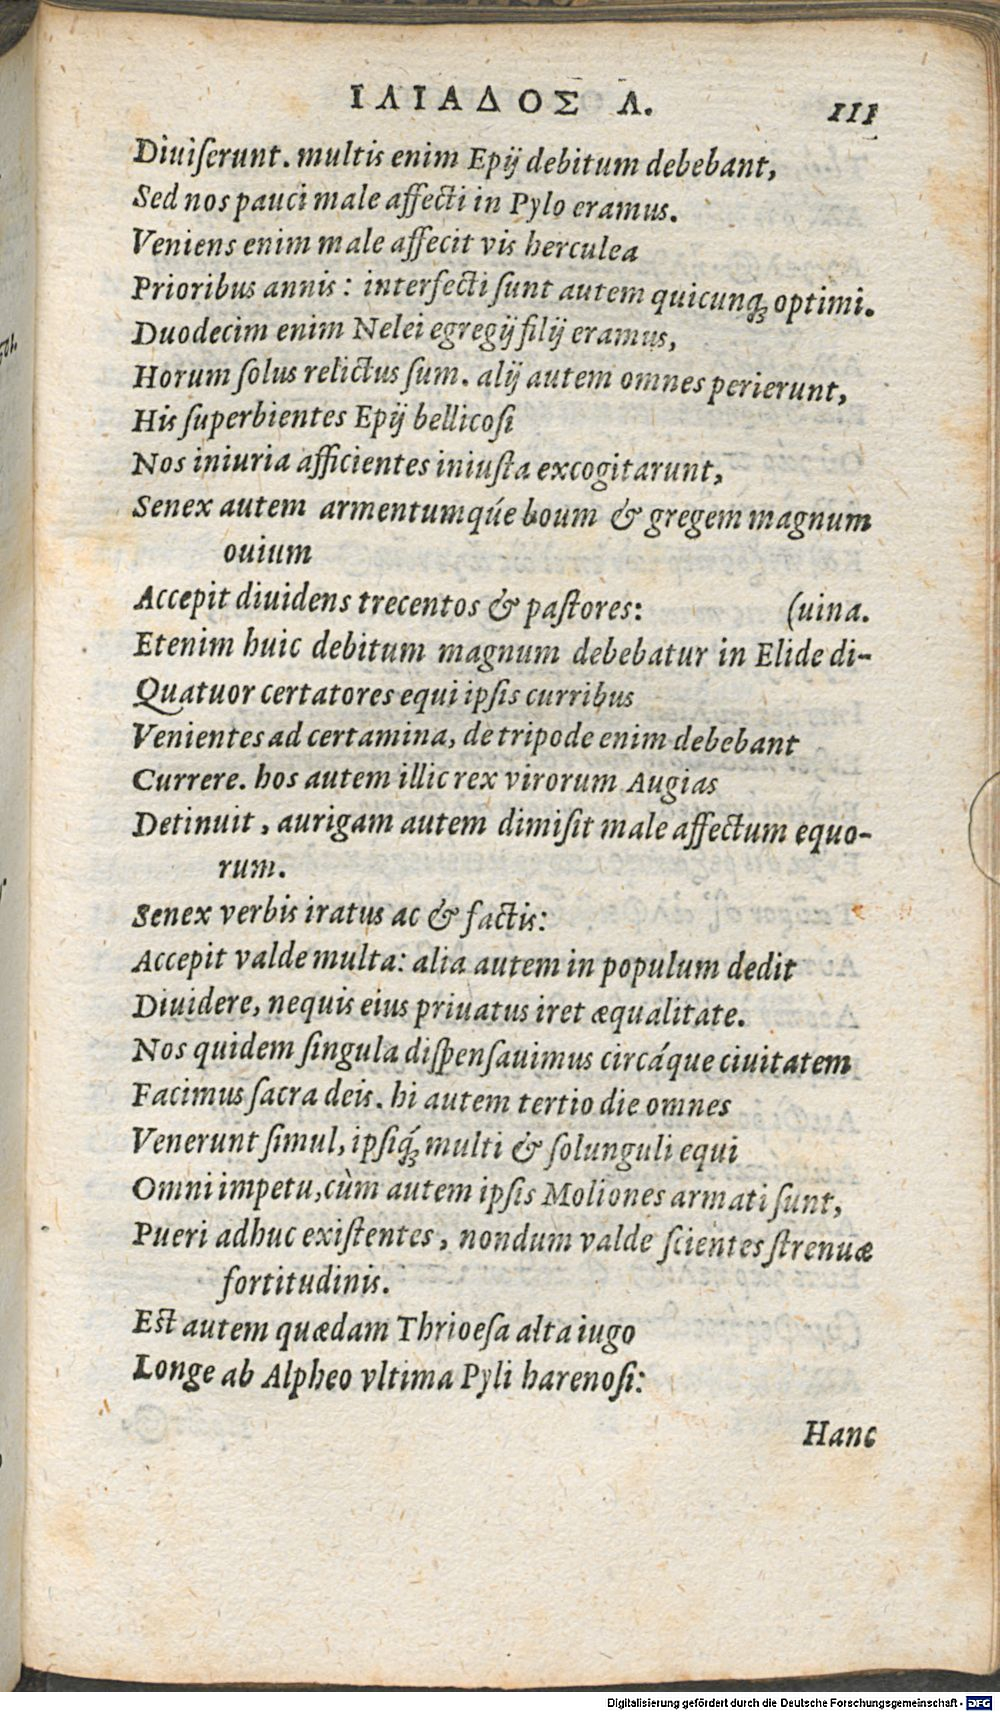 ΙΛΙΑΔΟΣ Λ. 111
Diuiſerunt. multis enim Epij debitum debebant,
Sed nos pauci male affecti in Pylo eramus.
Veniens enim male affecit vis herculea
Prioribus annis: interfecti ſunt autem quicunq; optimi.
Duodecim enim Nelei egregij filij eramus,
Horum ſolus relictus ſum. alij autem omnes perierunt,
His ſuperbientes Epij bellicoſi
Nos iniuria afficientes iniuſta excogitarunt,
Senex autem armentumqúe boum & gregem magnum
ouium
Accepit diuidens trecentos & paſtores: (uina.
Etenim huic debitum magnum debebatur in Elide di-
Quatuor certatores equi ipſis curribus
Venientes ad certamina, de tripode enim debebant
Currere. hos autem illic rex virorum Augias
Detinuit, aurigam autem dimiſit male affectum equo-
rum.
Senex verbis iratus ac & factis:
Accepit valde multa: alia autem in populum dedit
Diuidere, nequis eius priuatus iret æqualitate.
Nos quidem ſingula diſpenſauimus circáque ciuitatem
Facimus ſacra deis. hi autem tertio die omnes
Venerunt ſimul, ipſiq́; multi & ſolunguli equi
Omni impetu, cùm autem ipſis Moliones armati ſunt,
Pueri adhuc exiſtentes, nondum valde ſcientes ſtrenuæ
fortitudinis.
Est autem quædam Thrioeſa alta iugo
Longe ab Alpheo vltima Pyli harenoſi:
Hanc
Digitalisierung gefördert durch die Deutsche Forschungsgemeinschaft - DFG